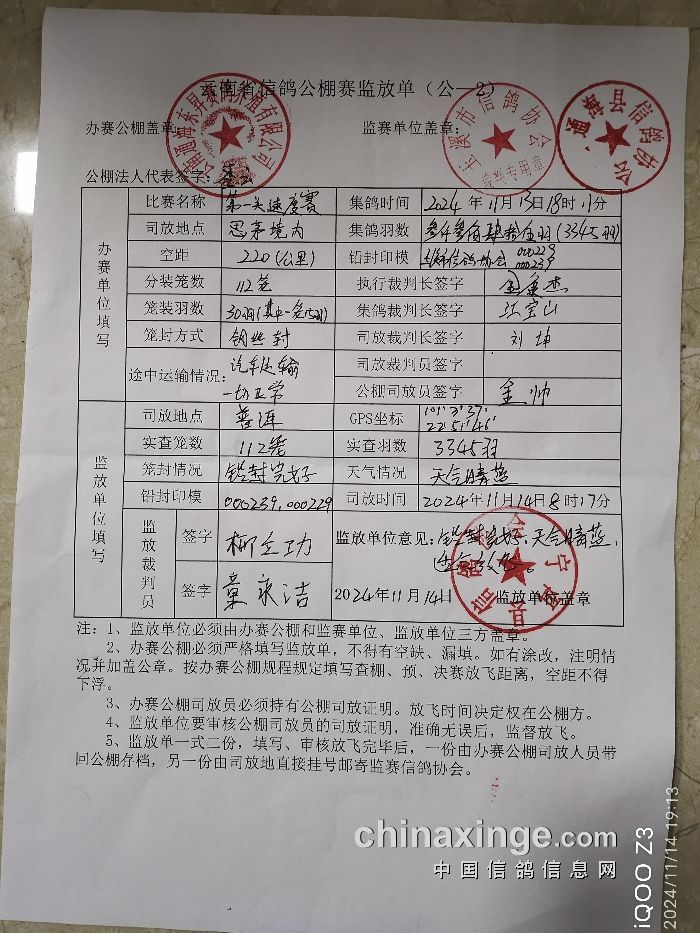 云南省信鸽公棚赛监放单（公—2）
办赛公棚盖章：
监赛单位盖章：
通海东昇赛鸽养殖有限公司
玉溪市信鸽协会
通海县信鸽协会
公棚法人代表签字：
办赛单位填写
比赛名称 第一关速度赛 集鸽时间 2024年11月13日18时11分
司放地点 思茅境内 集鸽羽数 叁仟叁佰肆拾伍羽(3345羽)
空距 220(公里) 铅封印模 信鸽协会 000229 000239
分装笼数 112笼 执行裁判长签字
笼装羽数 30羽(其中一笼15羽) 集鸽裁判长签字 江宝山
笼封方式 钢丝封 司放裁判长签字 刘坤
途中运输情况：汽车运输 一切正常 司放裁判员签字
公棚司放员签字 金帅
监放单位填写
司放地点 普洱 GPS坐标 101°3′37″ 22°51′46″
实查笼数 112笼 实查羽数 3345羽
笼封情况 铅封完好 天气情况 天气晴蓝
铅封印模 000239,000229 司放时间 2024年11月14日8时17分
监放裁判员 签字 柳立功 监放单位意见：铅封完好、天气晴蓝、
签字 章永洁 2024年11月14日 监放单位盖章
注：1、监放单位必须由办赛公棚和监赛单位、监放单位三方盖章。
2、办赛公棚必须严格填写监放单，不得有空缺、漏填。如有涂改，注明情
况并加盖公章。按办赛公棚规程规定填写查棚、预、决赛放飞距离，空距不得
下浮。
3、办赛公棚司放员必须持有公棚司放证明。放飞时间决定权在公棚方。
4、监放单位要审核公棚司放员的司放证明，准确无误后，监督放飞。
5、监放单一式二份，填写、审核放飞完毕后，一份由办赛公棚司放人员带
回公棚存档，另一份由司放地直接挂号邮寄监赛信鸽协会。
chinaxinge.com
中国信鸽信息网
iQOO Z3
2024/11/14 19:13